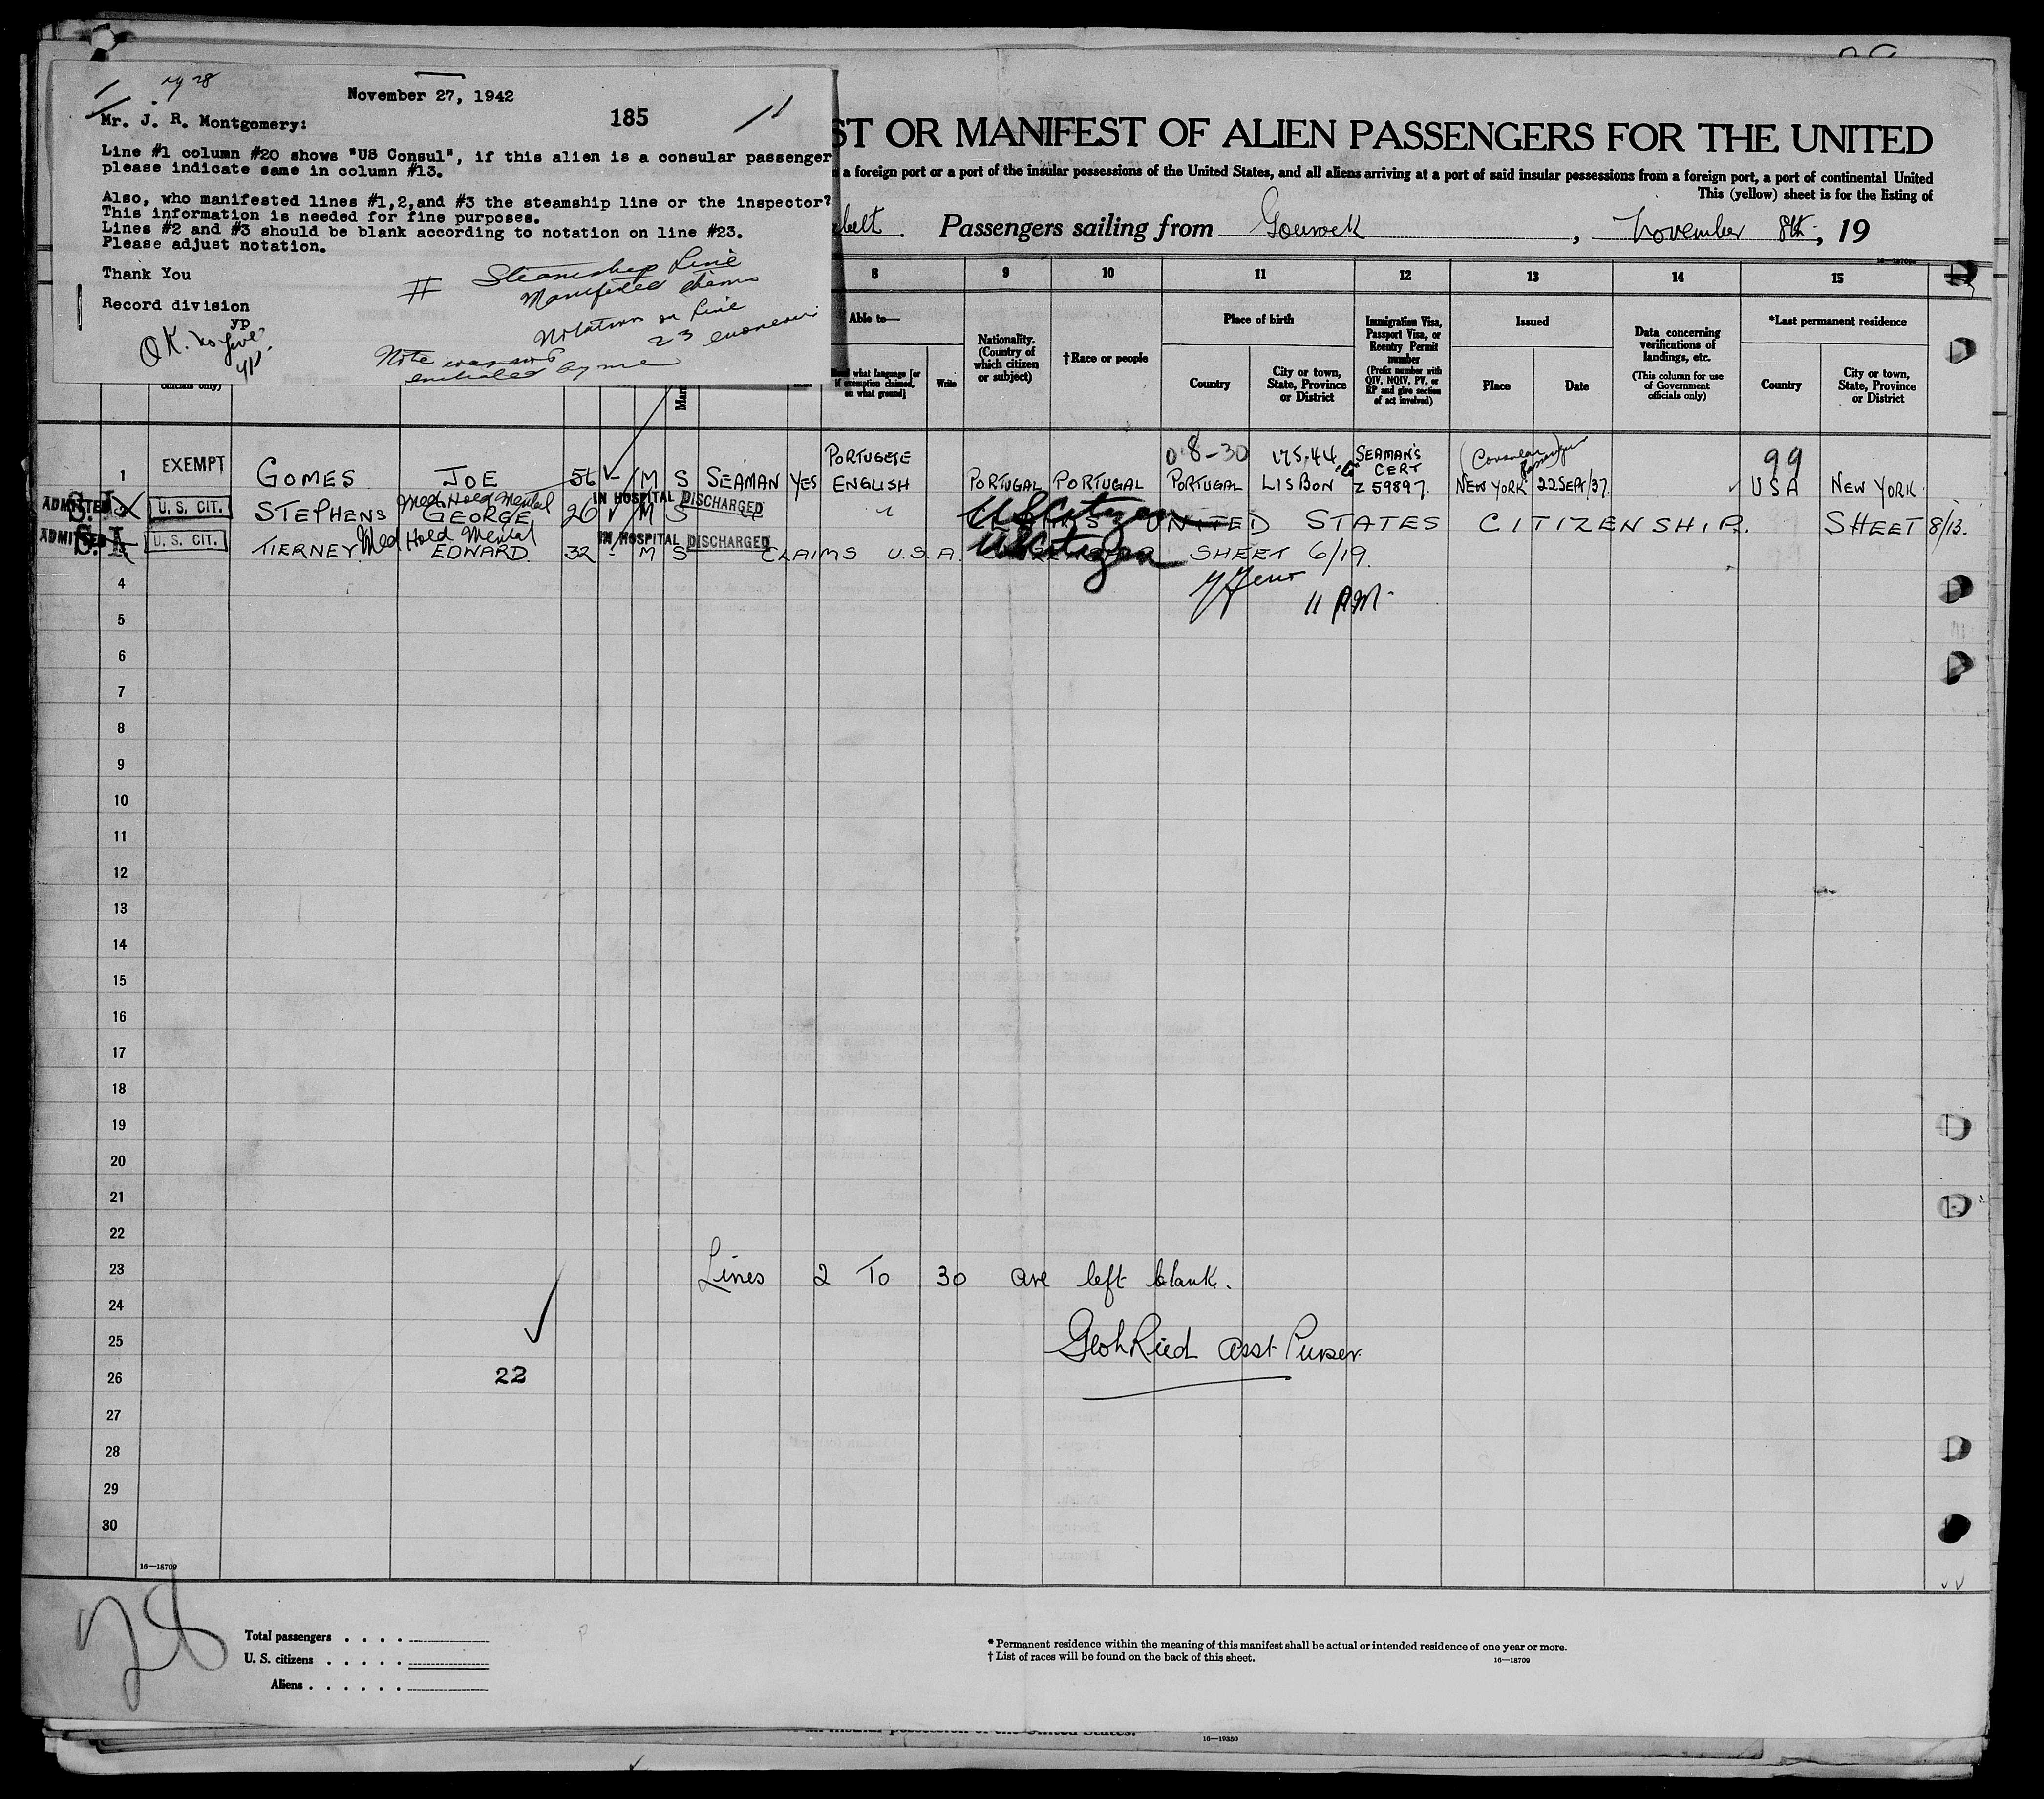 November 27, 1942
185
Mr. J. R. Montgomery:
Line #1 column #20 shows "US Consul", if this alien is a consular passenger
please indicate same in column #13.
Also, who manifested lines #1,2,and #3 the steamship line or the inspector?
This information is needed for fine purposes.
Lines #2 and #3 should be blank according to notation on line #23.
Please adjust notation.
Thank You
Record division
yp
# Steamship Line
Manifested them
Notation on line
23 erroneous
Note was not
initialed by me
O.K. no fine.
yp
ST OR MANIFEST OF ALIEN PASSENGERS FOR THE UNITED
a foreign port or a port of the insular possessions of the United States, and all aliens arriving at a port of said insular possessions from a foreign port, a port of continental United
This (yellow) sheet is for the listing of
Passengers sailing from Gourock, November 8th, 19
16—18709
8 9 10 11 12 13 14 15
Able to—
Read what language [or if exemption claimed, on what ground]
Write
Nationality. (Country of which citizen or subject)
†Race or people
Place of birth
Country
City or town, State, Province or District
Immigration Visa, Passport Visa, or Reentry Permit number
(Prefix number with QIV, NQIV, PV, or RP and give section of act involved)
Issued
Place
Date
Data concerning verifications of landings, etc.
(This column for use of Government officials only)
*Last permanent residence
Country
City or town, State, Province or District
officials only)
0 8-30 175.44 99
1 EXEMPT GOMES JOE 56 M S SEAMAN YES PORTUGESE ENGLISH PORTUGAL PORTUGAL PORTUGAL LISBON SEAMAN'S CERT Z 59897. (Consular Passenger) NEW YORK 22 SEPT/37. USA NEW YORK.
ADMITTED S.I. U. S. CIT. STEPHENS Med Hold Mental GEORGE 26 IN HOSPITAL M S DISCHARGED US Citizen UNITED STATES CITIZENSHIP. SHEET 8/13.
ADMITTED S.I. U. S. CIT. TIERNEY Med Hold Mental EDWARD. 32 IN HOSPITAL M S DISCHARGED CLAIMS U.S.A. US Citizen SHEET 6/19.
4
11 PM
5
6
7
8
9
10
11
12
13
14
15
16
17
18
19
20
21
22
23 Lines 2 To 30 are left blank.
24
25 Asst Purser.
26 22
27
28
29
30
16—18709
28
Total passengers
U. S. citizens
Aliens
* Permanent residence within the meaning of this manifest shall be actual or intended residence of one year or more.
† List of races will be found on the back of this sheet.
16—18709
16—19350